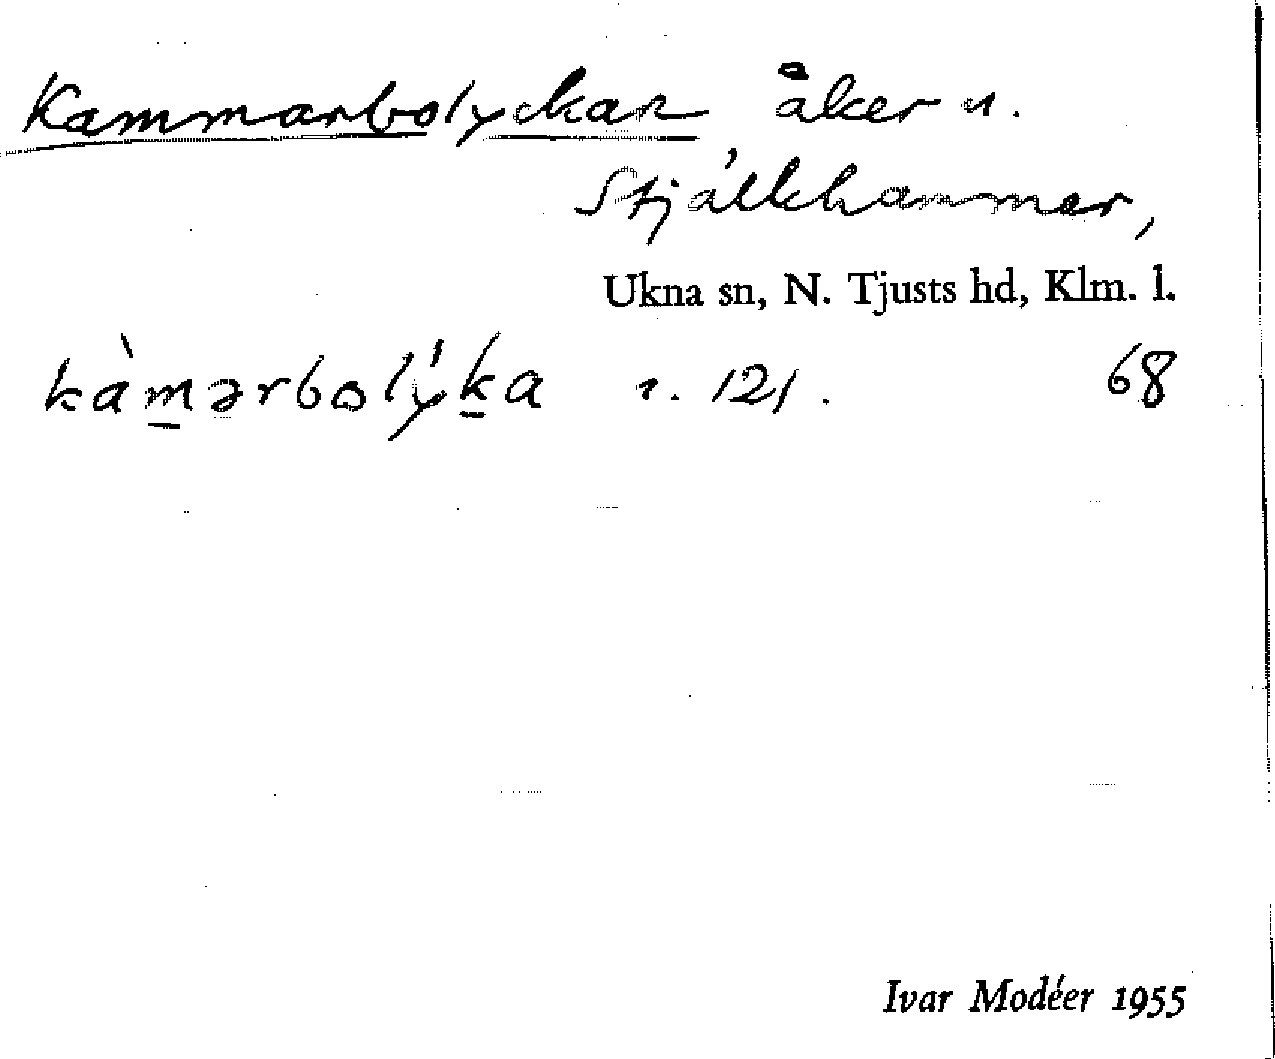 Kammarbolyckan åker u.
Stjälkhammar,
Ukna sn, N. Tjusts hd, Klm. l.
kàm̲ərbolýk̲a r. 121. 68
Ivar Modéer 1955